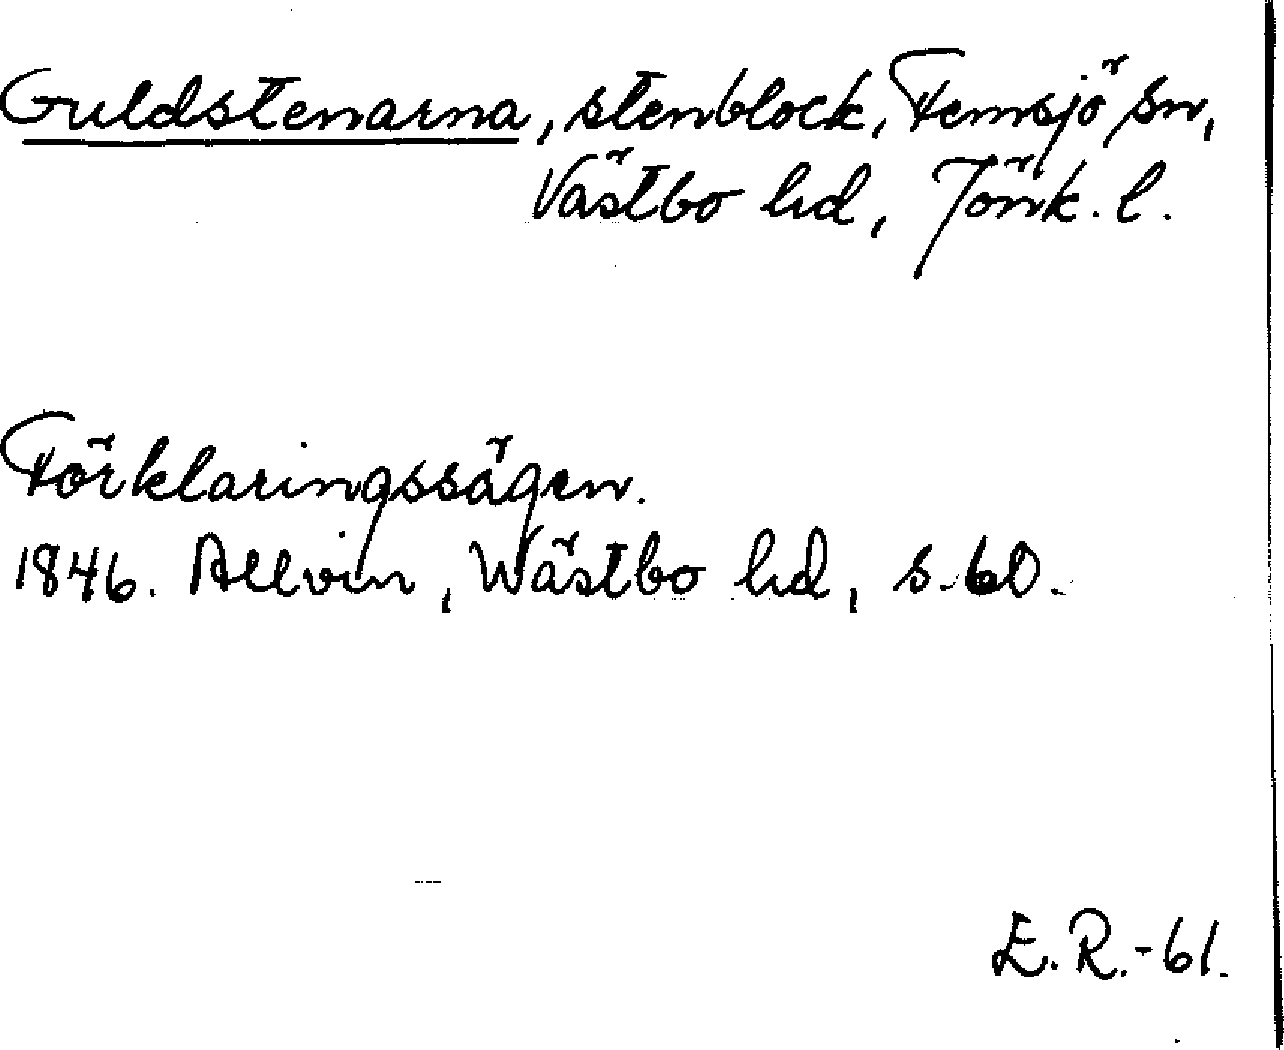 Guldstenarna, stenblock, Femsjö sn,
Västbo hd, Jönk. l.
Förklaringssägen.
1846. Allvin, Wästbo hd, s. 60.
E.R.-61.